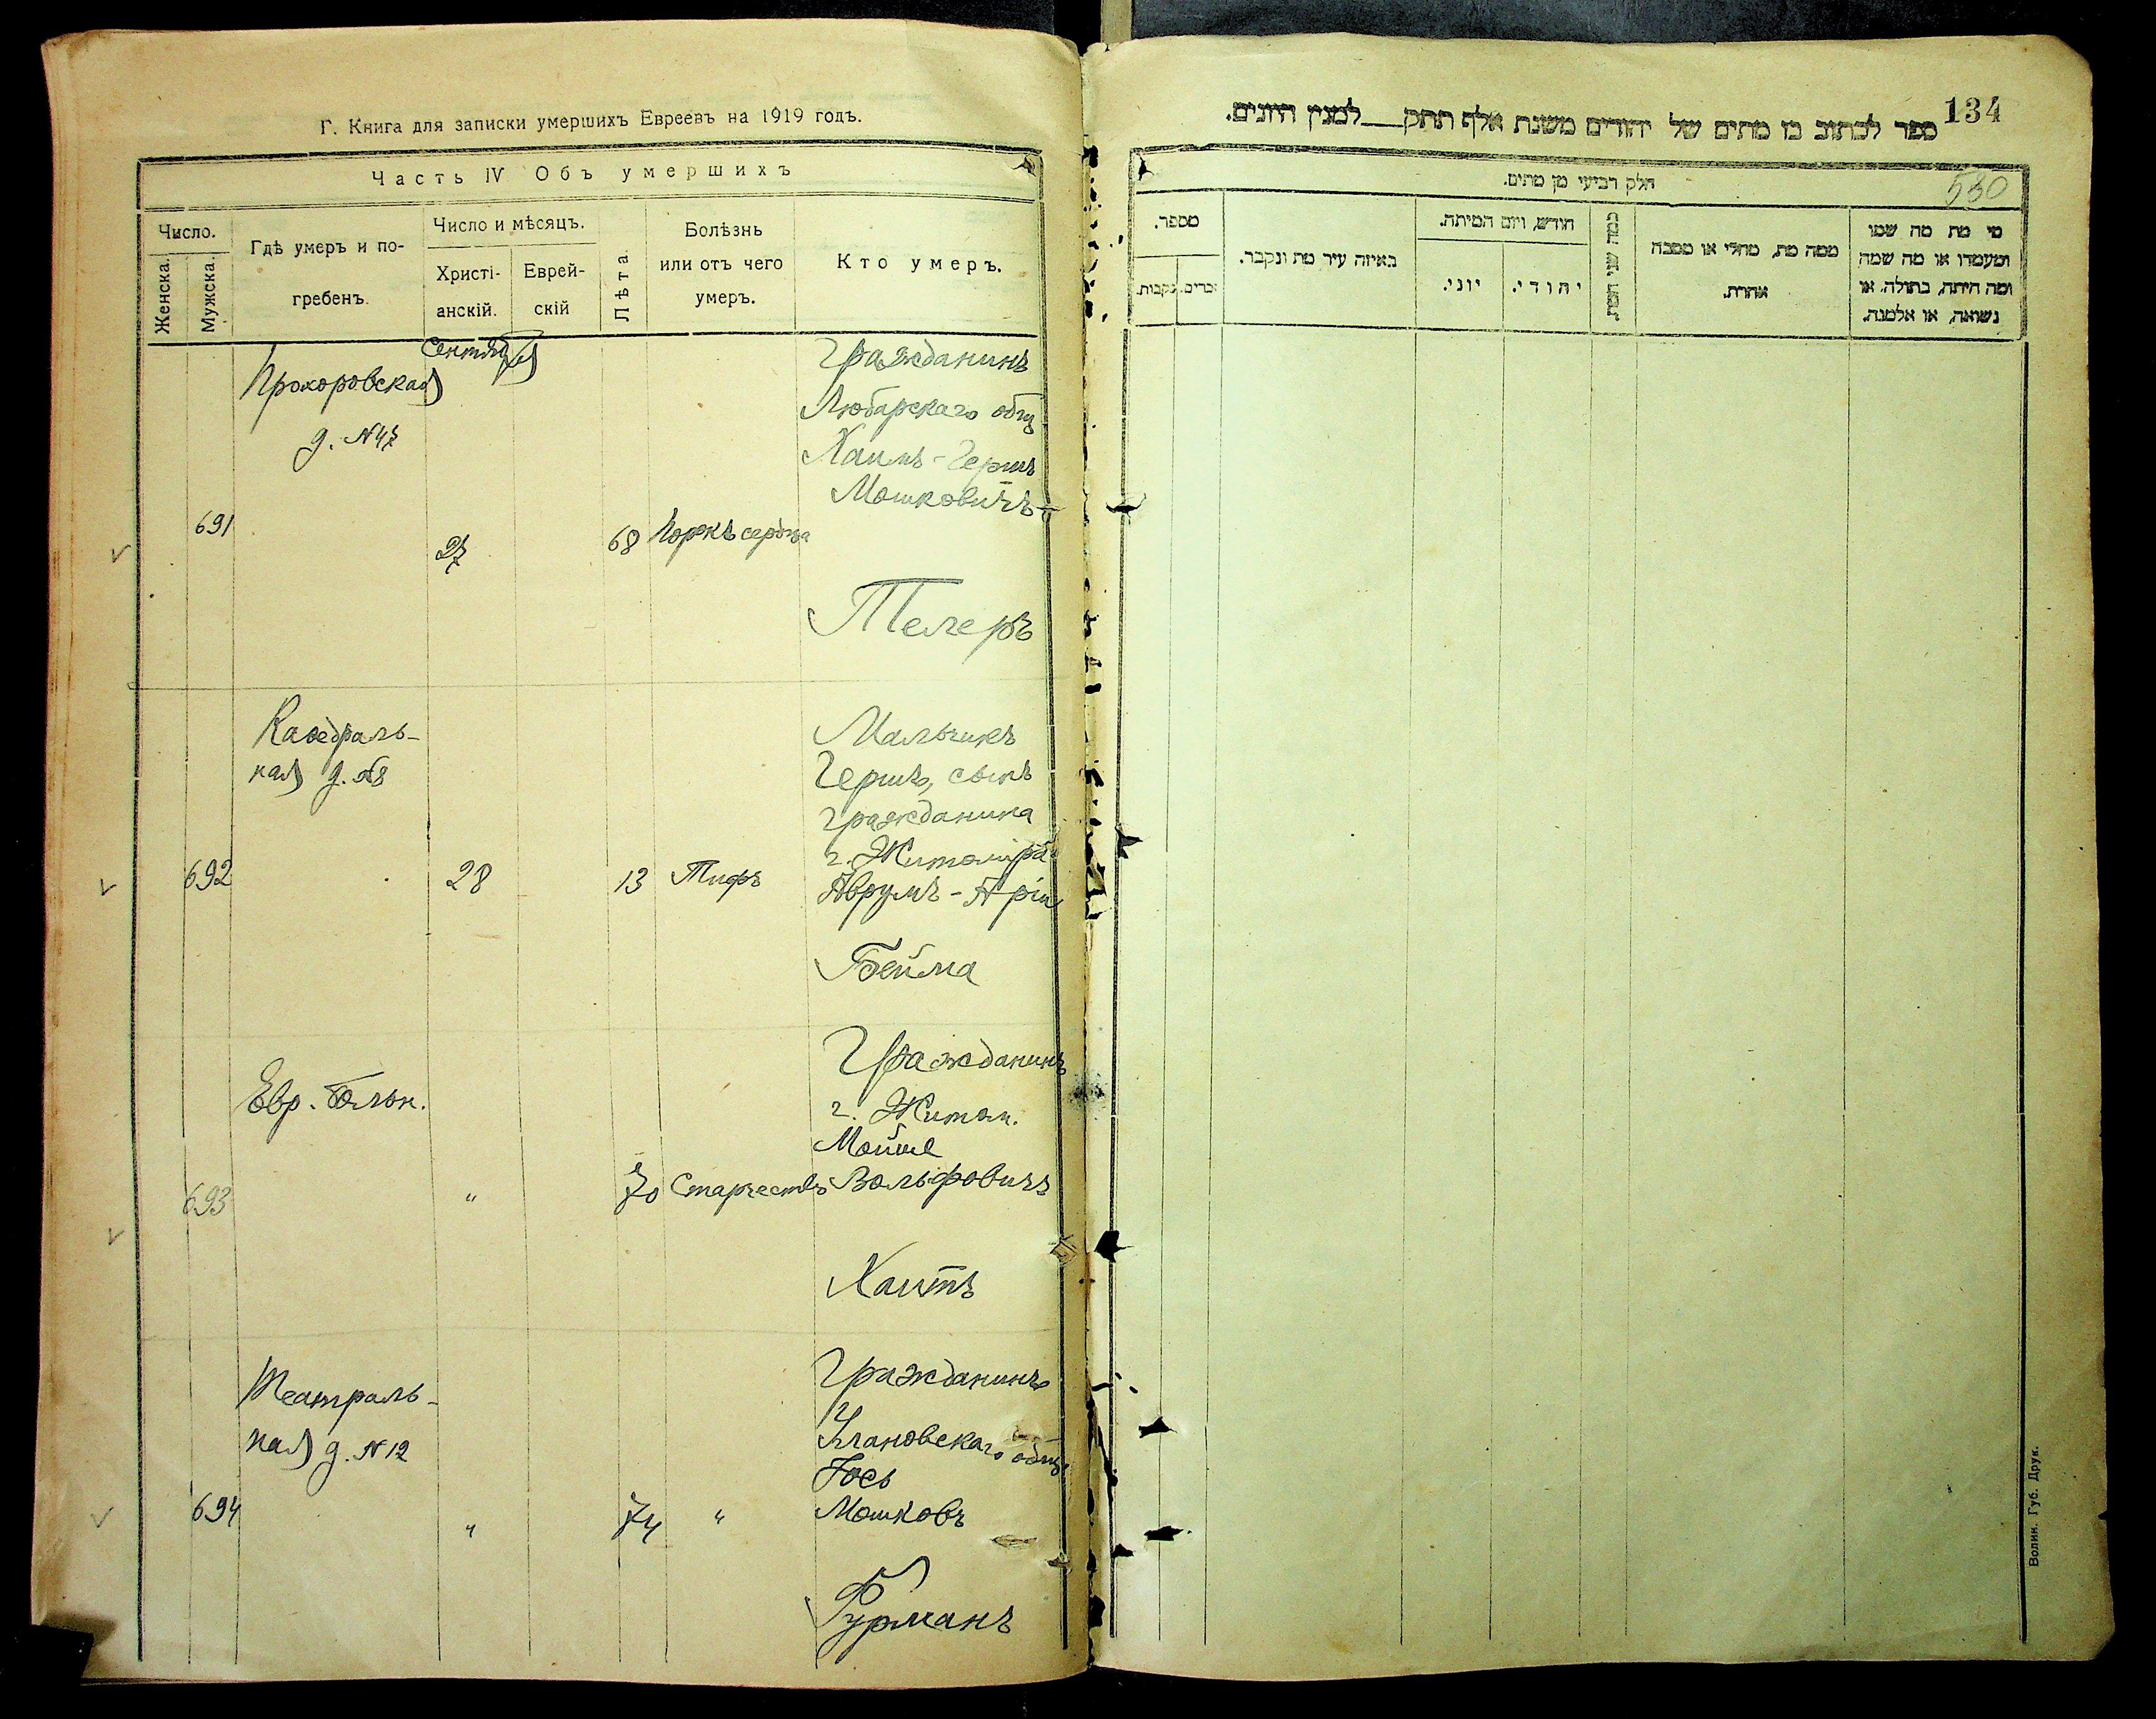 Г. Книга для записки умершихъ Евреевъ на 1919 годъ.
Часть IV Объ умершихъ
Число.
Женска.
Мужска.
Гдѣ умеръ и по-
гребенъ.
Число и мѣсяцъ.
Христі-
анскій.
Еврей-
скій
Лѣта.
Болѣзнь
или отъ чего
умеръ.
Кто умеръ.
Сентября
Прохоровская
д. №47
691
27
68
Порокъ сердца
Гражданинъ
Любарскаго общ
Хаимъ-Гершъ
Мошковичъ
Телеръ
Каѳедраль-
ная д. №8
692
28
13
Тифъ
Мальчикъ
Гершъ, сынъ
гражданина
г. Житоміра
Аврумъ-Аріи
Бейма
Евр. Больн.
693
"
70
Старчество
Гражданинъ
г. Житом.
Мойше
Вольфовичъ
Хаитъ
Театраль-
ная д. №12
694
"
74
"
Гражданинъ
Улановскаго общ.
Іось
Мошковъ
Фурманъ
134
ספר לכתוב בו מתים של יהודים משנת אלף תתק למנין היונים.
530
חלק רביעי מן מתים.
מי מת מה שמו
ומעמדו או מה שמה
ומה היתה, בתולה, או
נשואה, או אלמנה.
ממה מת, מחלי או מסבה
אחרת.
כמה שני המת.
חודש, ויום המיתה.
יהודי.
יוני.
באיזה עיר מת ונקבר.
מספר.
זכרים.
נקבות.
Волин. Губ. Друк.